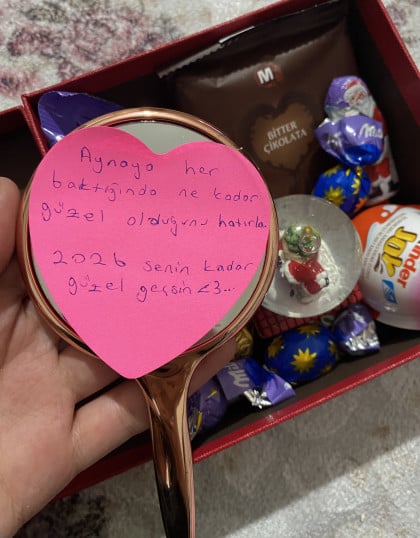 Aynaya her
baktığında ne kadar
güzel olduğunu hatırla.
2026 senin kadar
güzel geçsin <3...
M
BİTTER
ÇİKOLATA
Milka
Kinder
Joy
Milka